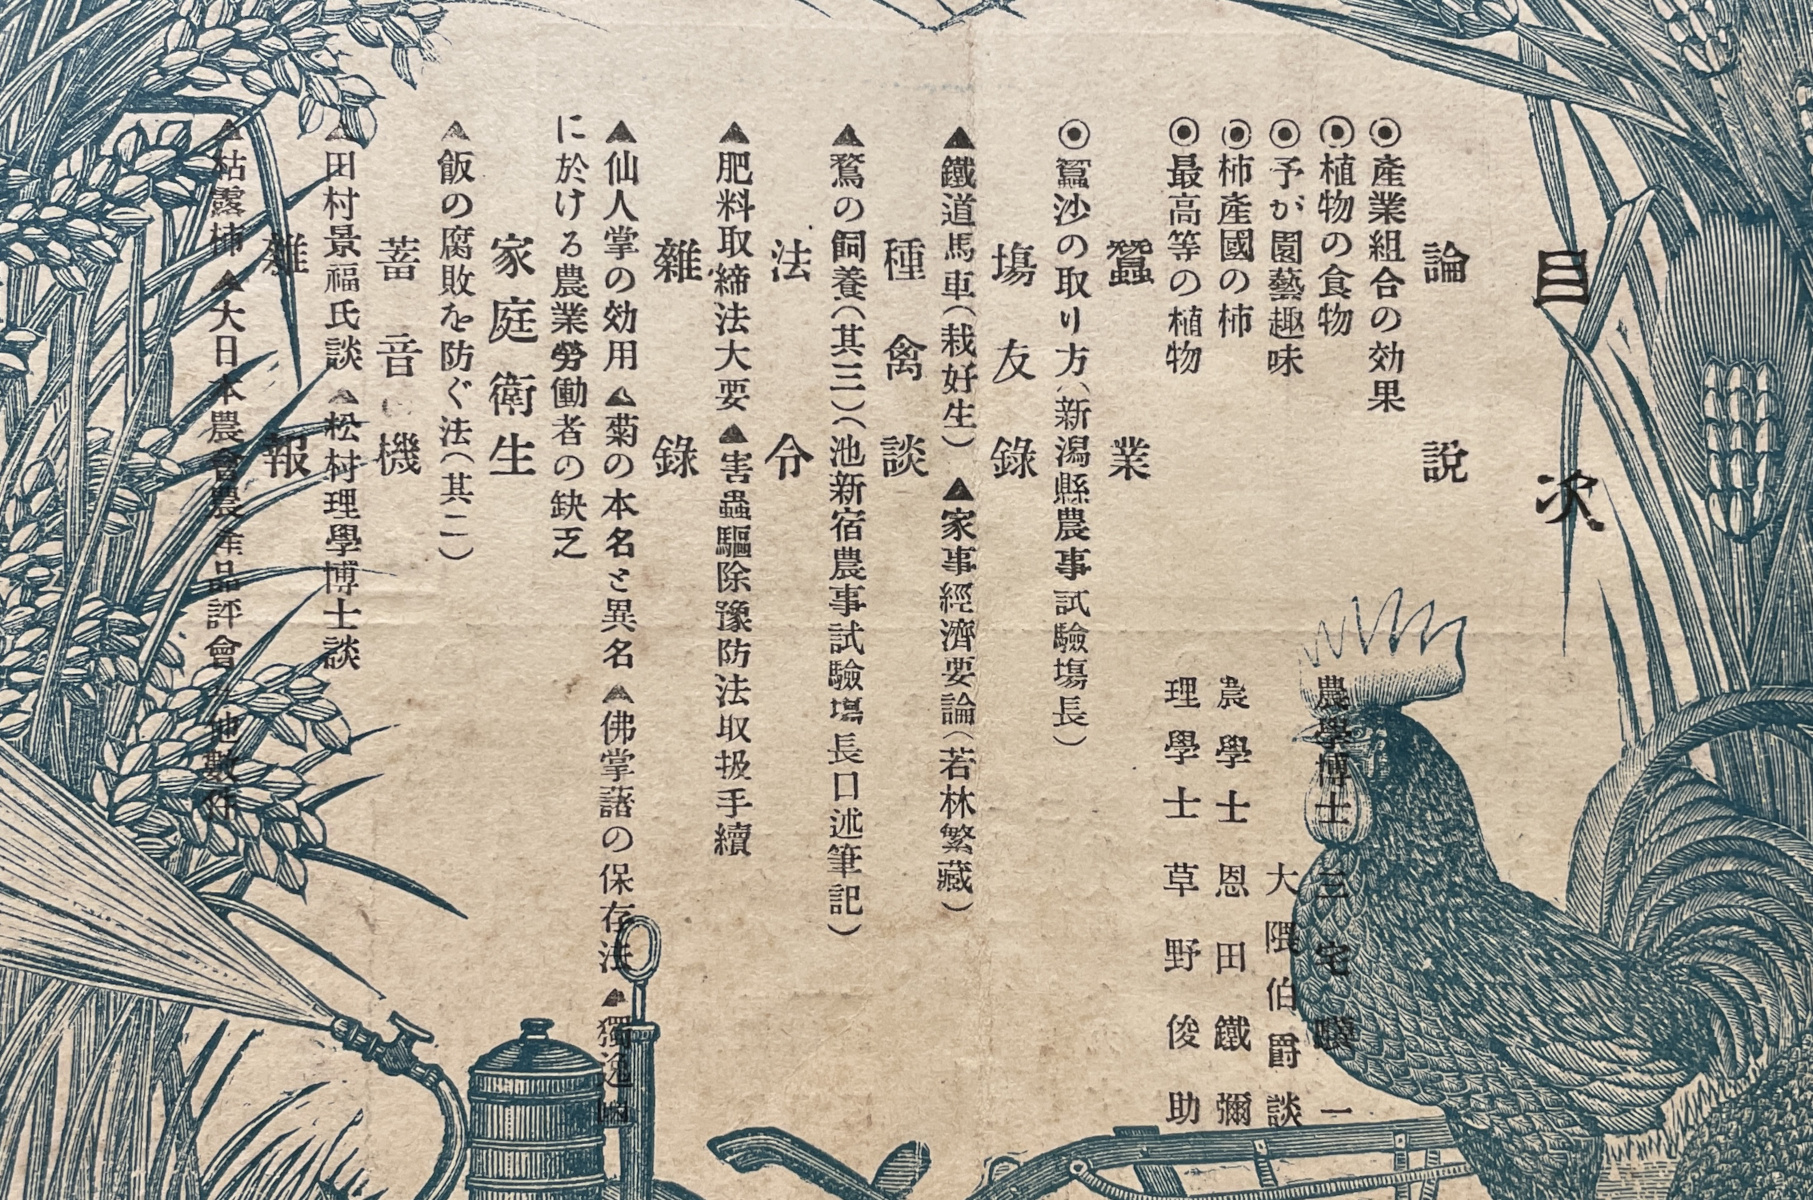 目次
論説
◉産業組合の効果
◉植物の食物　農學博士 三宅 一
◉予が園藝趣味　大隈伯爵談
◉柿產國の柿　農學士 恩田鐵彌
◉最高等の植物　理學士 草野俊助
蠶業
◉蠶沙の取り方（新潟縣農事試驗塲長）
塲友錄
▲鐵道馬車（栽好生）▲家事經濟要論（若林繁藏）
種禽談
▲鶩の飼養（其三）（池新宿農事試驗塲長口述筆記）
法令
▲肥料取締法大要▲害蟲驅除豫防法取扱手續
雜錄
▲仙人掌の効用▲菊の本名と異名▲佛掌藷の保存法▲獨逸國
に於ける農業勞働者の缺乏
家庭衛生
▲飯の腐敗を防ぐ法（其二）
蓄音機
▲田村景福氏談▲松村理學博士談
雜報
▲枯露柿▲大日本農會農產品評會外他數件